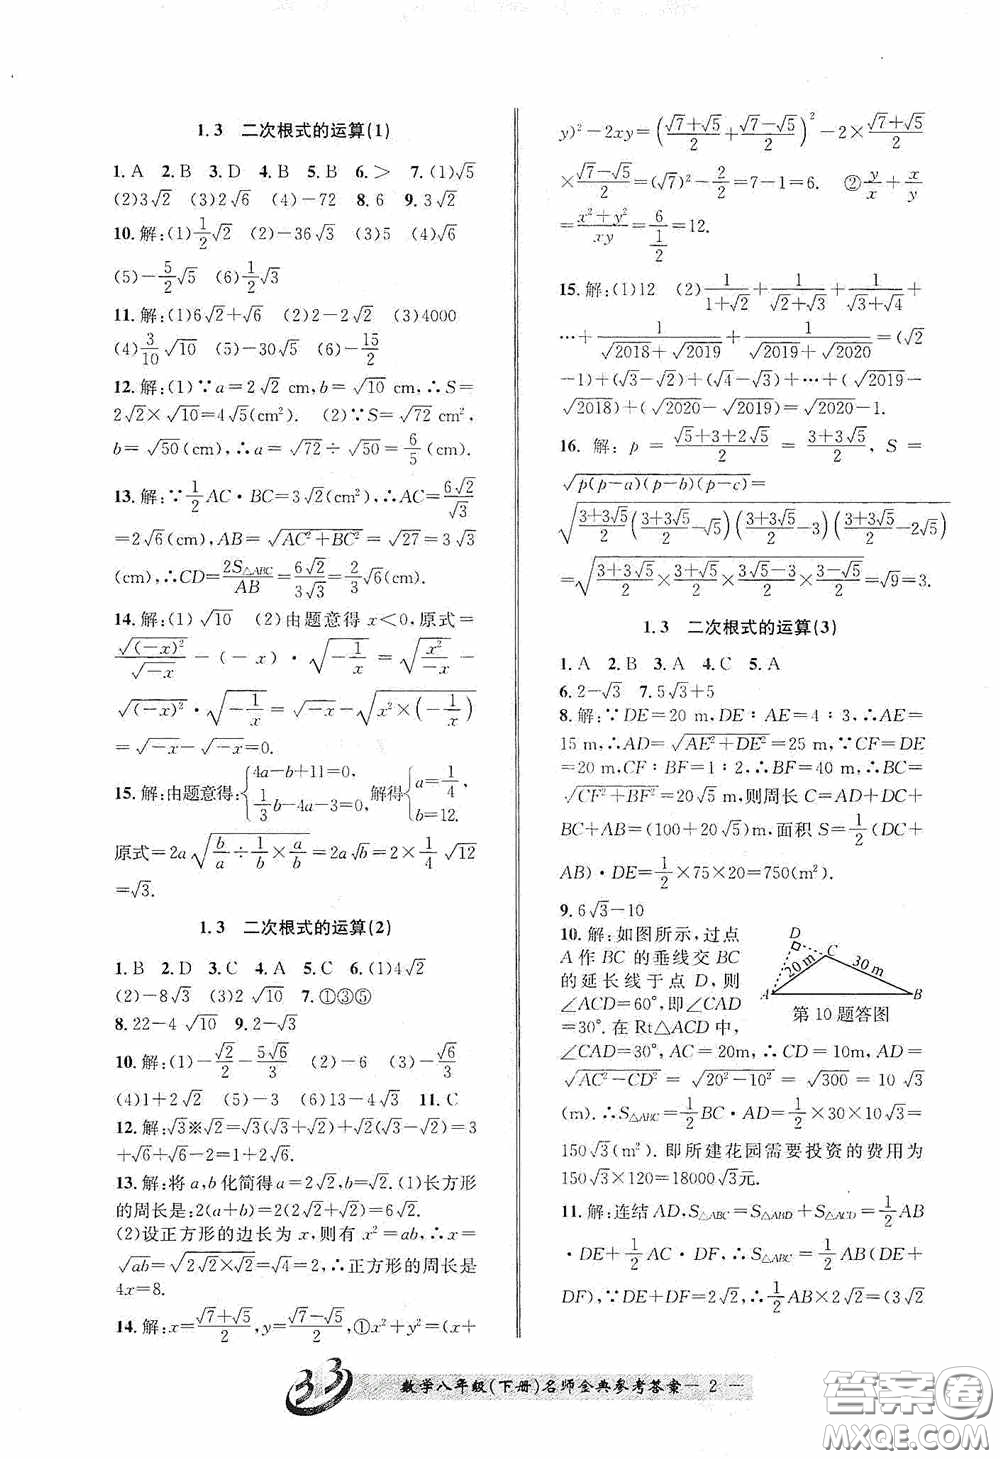 1.3 二次根式的运算(1)
1. A 2. B 3. D 4. B 5. B 6. > 7. (1)√5
(2)3√2 (3)2√6 (4)-72 8. 6 9. 3√2
10. 解:(1)1/2√2 (2)-36√3 (3)5 (4)√6
(5)-5/2√5 (6)1/2√3
11. 解:(1)6√2+√6 (2)2-2√2 (3)4000
(4)3/10√10 (5)-30√5 (6)-15/2
12. 解:(1)∵a=2√2 cm,b=√10 cm,∴S=
2√2×√10=4√5(cm²). (2)∵S=√72 cm²,
b=√50(cm),∴a=√72÷√50=6/5(cm).
13. 解:∵1/2AC·BC=3√2(cm²),∴AC=6√2/√3
=2√6(cm),AB=√(AC²+BC²)=√27=3√3
(cm),∴CD=2S△ABC/AB=6√2/3√3=2/3√6(cm).
14. 解:(1)√10 (2)由题意得 x<0,原式=
√(-x)²/√-x-(-x)·√(-1/x)=√(x²/-x)-
√(-x)²·√(-1/x)=√-x-√(x²×(-1/x))
=√-x-√-x=0.
15. 解:由题意得:{4a-b+11=0, 1/3b-4a-3=0, 解得{a=1/4, b=12.
原式=2a√(b/a÷1/b×a/b)=2a√b=2×1/4√12
=√3.
1.3 二次根式的运算(2)
1. B 2. D 3. C 4. A 5. C 6. (1)4√2
(2)-8√3 (3)2√10 7. ①③⑤
8. 22-4√10 9. 2-√3
10. 解:(1)-√2/2-5√6/3 (2)-6 (3)-√6/3
(4)1+2√2 (5)-3 (6)13-4√3 11. C
12. 解:√3※√2=√3(√3+√2)+√2(√3-√2)=3
+√6+√6-2=1+2√6.
13. 解:将 a,b 化简得 a=2√2,b=√2.(1)长方形
的周长是:2(a+b)=2(2√2+√2)=6√2.
(2)设正方形的边长为 x,则有 x²=ab,∴x=
√ab=√(2√2×√2)=√4=2,∴正方形的周长是
4x=8.
14. 解:x=(√7+√5)/2,y=(√7-√5)/2,①x²+y²=(x+
y)²-2xy=((√7+√5)/2+(√7-√5)/2)²-2×(√7+√5)/2
×(√7-√5)/2=(√7)²-2/2=7-1=6. ②y/x+x/y
=(x²+y²)/xy=6/(1/2)=12.
15. 解:(1)12 (2)1/(1+√2)+1/(√2+√3)+1/(√3+√4)+
…+1/(√2018+√2019)+1/(√2019+√2020)=(√2
-1)+(√3-√2)+(√4-√3)+…+(√2019-
√2018)+(√2020-√2019)=√2020-1.
16. 解: p=(√5+3+2√5)/2=(3+3√5)/2, S=
√(p(p-a)(p-b)(p-c))=
√((3+3√5)/2((3+3√5)/2-√5)((3+3√5)/2-3)((3+3√5)/2-2√5)
=√((3+3√5)/2×(3+√5)/2×(3√5-3)/2×(3-√5)/2)=√9=3.
1.3 二次根式的运算(3)
1. A 2. B 3. A 4. C 5. A
6. 2-√3 7. 5√3+5
8. 解:∵DE=20 m,DE:AE=4:3,∴AE=
15 m,∴AD=√(AE²+DE²)=25 m,∵CF=DE
=20 m,CF:BF=1:2,∴BF=40 m,∴BC=
√(CF²+BF²)=20√5 m,则周长 C=AD+DC+
BC+AB=(100+20√5)m,面积 S=1/2(DC+
AB)·DE=1/2×75×20=750(m²).
9. 6√3-10
10. 解:如图所示,过点
A 作 BC 的垂线交 BC
的延长线于点 D,则
∠ACD=60°,即∠CAD
=30°.在 Rt△ACD 中,
D
C
20 m
30 m
A
B
第 10 题答图
∠CAD=30°, AC=20m,∴CD=10m, AD=
√(AC²-CD²)=√(20²-10²)=√300=10√3
(m).∴S△ABC=1/2BC·AD=1/2×30×10√3=
150√3(m²).即所建花园需要投资的费用为
150√3×120=18000√3元.
11. 解:连结 AD,S△ABC=S△ABD+S△ACD=1/2AB
·DE+1/2AC·DF,∴S△ABC=1/2AB(DE+
DF),∵DE+DF=2√2,∴1/2AB×2√2=(3√2
33 数学八年级(下册)名师金典参考答案— 2 —
答案卷
MXQE.COM